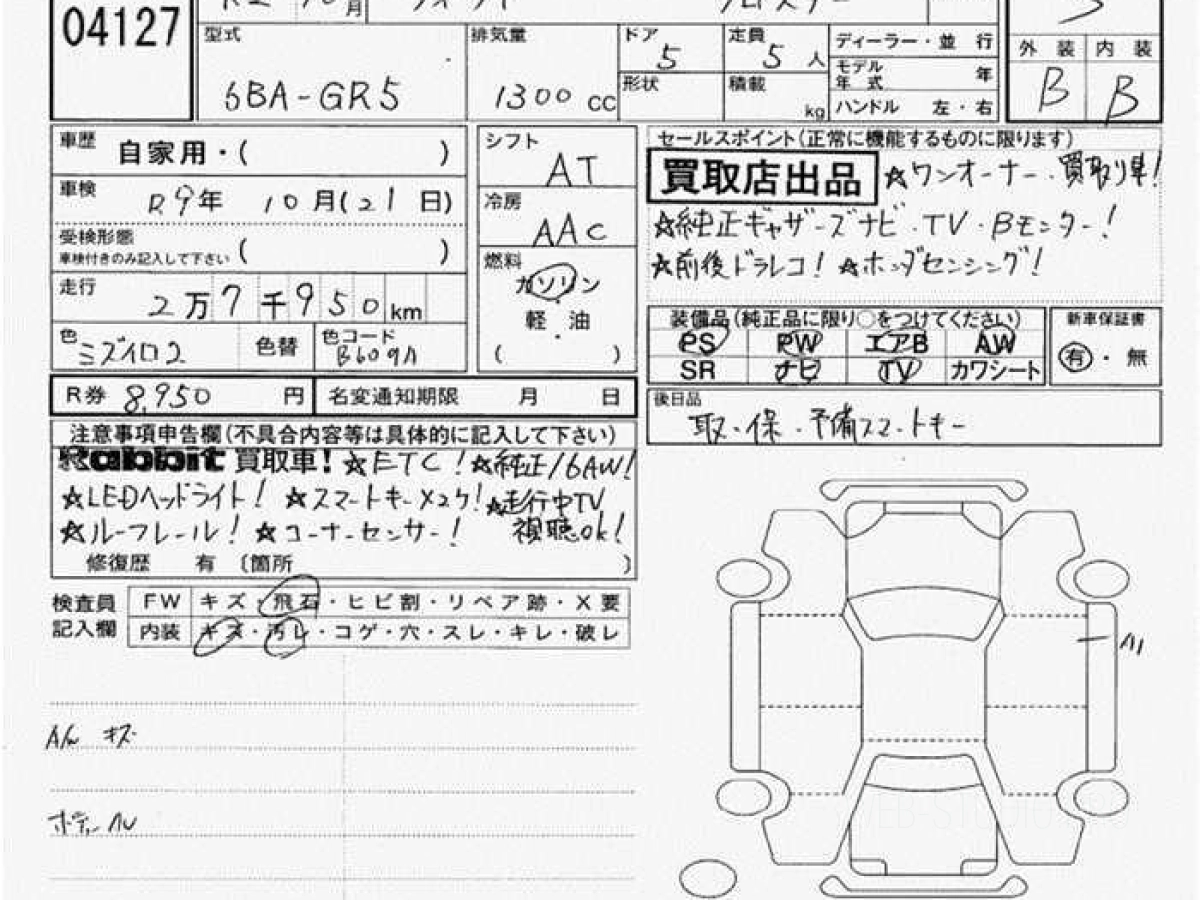 04127
月
型式 6BA-GR5
排気量 1300 CC
ドア 5
定員 5 人
形状
積載 kg
ディーラー・並 行
モデル年式 年
ハンドル 左・右
外 装 内 装
B B
車歴 自家用・( )
車検 R9年 10月(21日)
受検形態 ( )
車検付きのみ記入して下さい
走行 2万7千950km
色 ミズイロ2 色替 色コード B609A
シフト AT
冷房 AAC
燃料 ガソリン
軽・油
( )
セールスポイント(正常に機能するものに限ります)
買取店出品 ☆ワンオーナー・買取り車!
☆純正ギャザーズナビ・TV・Bモニター!
☆前後ドラレコ! ☆ホンダセンシング!
装備品(純正品に限り○をつけてください)
PS PW エアB AW
SR ナビ TV カワシート
新車保証書
有・無
R券 8,950 円 名変通知期限 月 日
後日品
取・保・予備スマートキー
注意事項申告欄(不具合内容等は具体的に記入して下さい)
Rabbit 買取車! ☆ETC! ☆純正16AW!
☆LEDヘッドライト! ☆スマートキー×2ケ! ☆走行中TV
☆ルーフレール! ☆コーナーセンサー! 視聴ok!
修復歴 有 〔箇所 〕
検査員記入欄
FW キズ・飛石・ヒビ割・リペア跡・X要
内装 キズ・汚レ・コゲ・穴・スレ・キレ・破レ
A1
A/w キズ